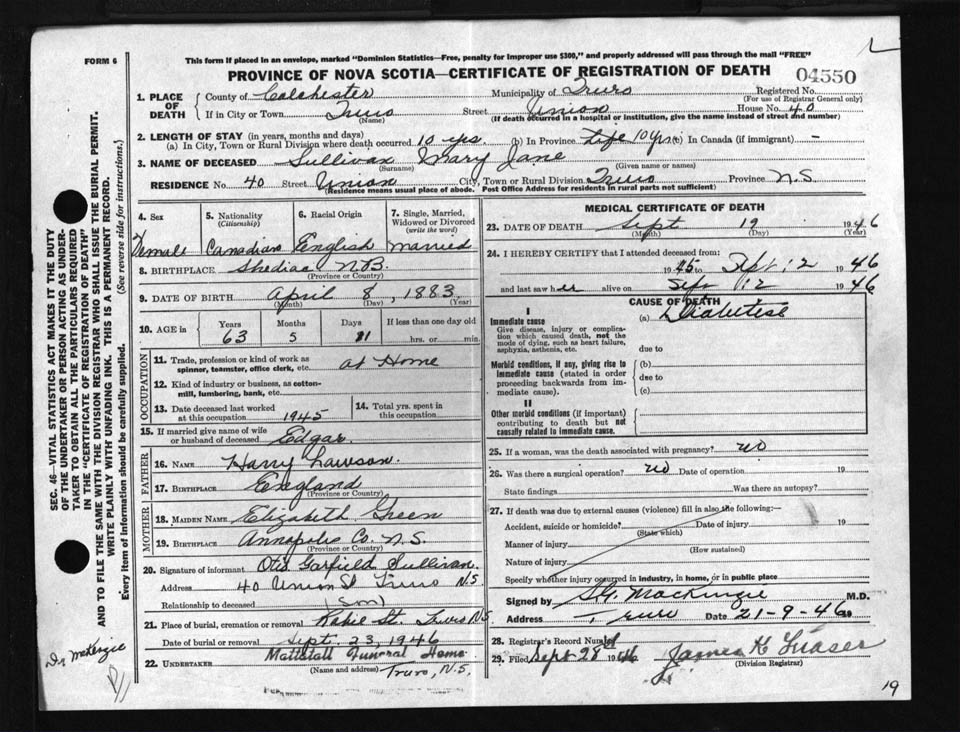 FORM 6
This form if placed in an envelope, marked "Dominion Statistics—Free, penalty for improper use $300," and properly addressed will pass through the mail "FREE"
PROVINCE OF NOVA SCOTIA—CERTIFICATE OF REGISTRATION OF DEATH
04550
1. PLACE OF DEATH
County of Colchester Municipality of Truro Registered No.
(For use of Registrar General only)
If in City or Town Truro Street Union House No. 40
(Name) (If death occurred in a hospital or institution, give the name instead of street and number)
2. LENGTH OF STAY (in years, months and days)
(a) In City, Town or Rural Division where death occurred 10 yrs. (b) In Province Life 10 yrs (c) In Canada (if immigrant) —
3. NAME OF DECEASED Sullivan Mary Jane
(Surname) (Given name or names)
RESIDENCE No. 40 Street Union City, Town or Rural Division Truro Province N.S.
(Residence means usual place of abode. Post Office Address for residents in rural parts not sufficient)
4. Sex
Female
5. Nationality
(Citizenship)
Canadian
6. Racial Origin
English
7. Single, Married, Widowed or Divorced
(write the word)
Married
8. BIRTHPLACE Shediac N.B.
(Province or Country)
9. DATE OF BIRTH April 8, 1883
(Month) (Day) (Year)
10. AGE in
Years Months Days If less than one day old
63 5 11 hrs. or min.
OCCUPATION
11. Trade, profession or kind of work as
spinner, teamster, office clerk, etc. at Home
12. Kind of industry or business, as cotton-
mill, lumbering, bank, etc.
13. Date deceased last worked
at this occupation 1945
14. Total yrs. spent in
this occupation
15. If married give name of wife
or husband of deceased Edgar.
FATHER
16. NAME Harry Lawson.
17. BIRTHPLACE England
(Province or Country)
MOTHER
18. MAIDEN NAME Elizabeth Green
19. BIRTHPLACE Annapolis Co. N.S.
(Province or Country)
20. Signature of informant Otis Garfield Sullivan.
Address 40 Union St Truro N.S
Relationship to deceased Son
21. Place of burial, cremation or removal St. Truro N.S
Date of burial or removal Sept. 23, 1946
22. UNDERTAKER Mattatall Funeral Home
(Name and address) Truro, N.S.
MEDICAL CERTIFICATE OF DEATH
23. DATE OF DEATH Sept. 19 1946
(Month) (Day) (Year)
24. I HEREBY CERTIFY that I attended deceased from:
1945 to Sept 12 1946
and last saw her alive on Sept 12 1946
CAUSE OF DEATH
I
Immediate cause
Give disease, injury or complica-
tion which caused death, not the
mode of dying, such as heart failure,
asphyxia, asthenia, etc.
(a) Diabetise
due to
Morbid conditions, if any, giving rise to
immediate cause (stated in order
proceeding backwards from im-
mediate cause).
(b)
due to
(c)
II
Other morbid conditions (if important)
contributing to death but not
causally related to immediate cause.
25. If a woman, was the death associated with pregnancy? no
26. Was there a surgical operation? no Date of operation 19
State findings Was there an autopsy?
27. If death was due to external causes (violence) fill in also the following:—
Accident, suicide or homicide? Date of injury 19
(State which)
Manner of injury
(How sustained)
Nature of injury
Specify whether injury occurred in industry, in home, or in public place
Signed by S.G. MacKenzie M.D.
Address Truro Date 21-9-46 19
28. Registrar's Record Number
29. Filed Sept 28 1946 James H Fraser
(Division Registrar)
19
SEC. 46—VITAL STATISTICS ACT MAKES IT THE DUTY
OF THE UNDERTAKER OR PERSON ACTING AS UNDER-
TAKER TO OBTAIN ALL THE PARTICULARS REQUIRED
IN THE "CERTIFICATE OF REGISTRATION OF DEATH"
AND TO FILE THE SAME WITH THE DIVISION REGISTRAR WHO SHALL ISSUE THE BURIAL PERMIT.
WRITE PLAINLY WITH UNFADING INK. THIS IS A PERMANENT RECORD.
Every item of information should be carefully supplied. (See reverse side for instructions.)
Dr McKenzie